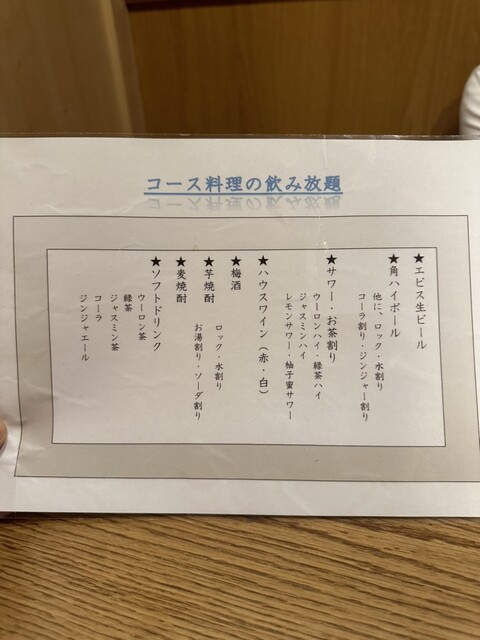 コース料理の飲み放題
★エビス生ビール
★角ハイボール
他に、ロック・水割り
コーラ割り・ジンジャー割り
★サワー・お茶割り
ウーロンハイ・緑茶ハイ
ジャスミンハイ
レモンサワー・柚子蜜サワー
★ハウスワイン（赤・白）
★梅酒
★芋焼酎
ロック・水割り
お湯割り・ソーダ割り
★麦焼酎
★ソフトドリンク
ウーロン茶
緑茶
ジャスミン茶
コーラ
ジンジャエール